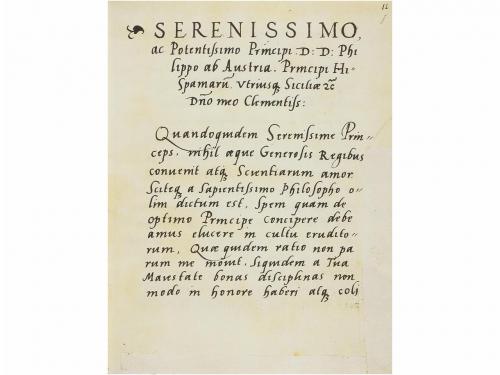 12
SERENISSIMO,
ac Potentissimo Principi. D: D: Phi
lippo ab Austria. Principi Hi-
spaniarū. Vtriusq Siciliæ &c
Dño meo Clementiss:
Quandoquidem Serenissime Prin-
ceps, nihil æque Generosis Regibus
convenit atq Scientiarum amor
Sciteq a Sapientissimo Philosopho o-
lim dictum est, Spem quam de
optimo Principe concipere debe
amus elucere in cultu erudito-
rum, Quæ quidem ratio non pa
rum me movit. Siquidem a Tua
Maiestate bonas disciplinas non
modo in honore haberi atq coli